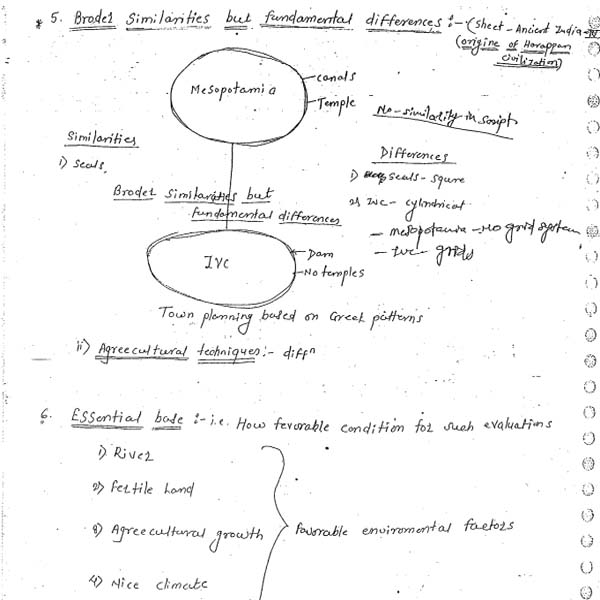 * 5. Broder Similarities but fundamental differences :- (sheet - Ancient India - IV
(origine of Harappan
civilization)
Mesopotamia
canals
Temple
No-similarity in script
Similarities
i) seals.
Differences
1) seals - squre
2) IVC - cylindrical
- mesopotamia - No grid system
- IVC - grids
Broder similarities but
fundamental differences
IVC
Dam
No temples
Town planning based on Great patterns
ii) Agreecultural techniques :- diffn
6. Essential base :- i.e. How feverable condition for such evaluations
1) River
2) fertile land
3) Agreecultural growth
favorable enviromental factors
4) Nice climate